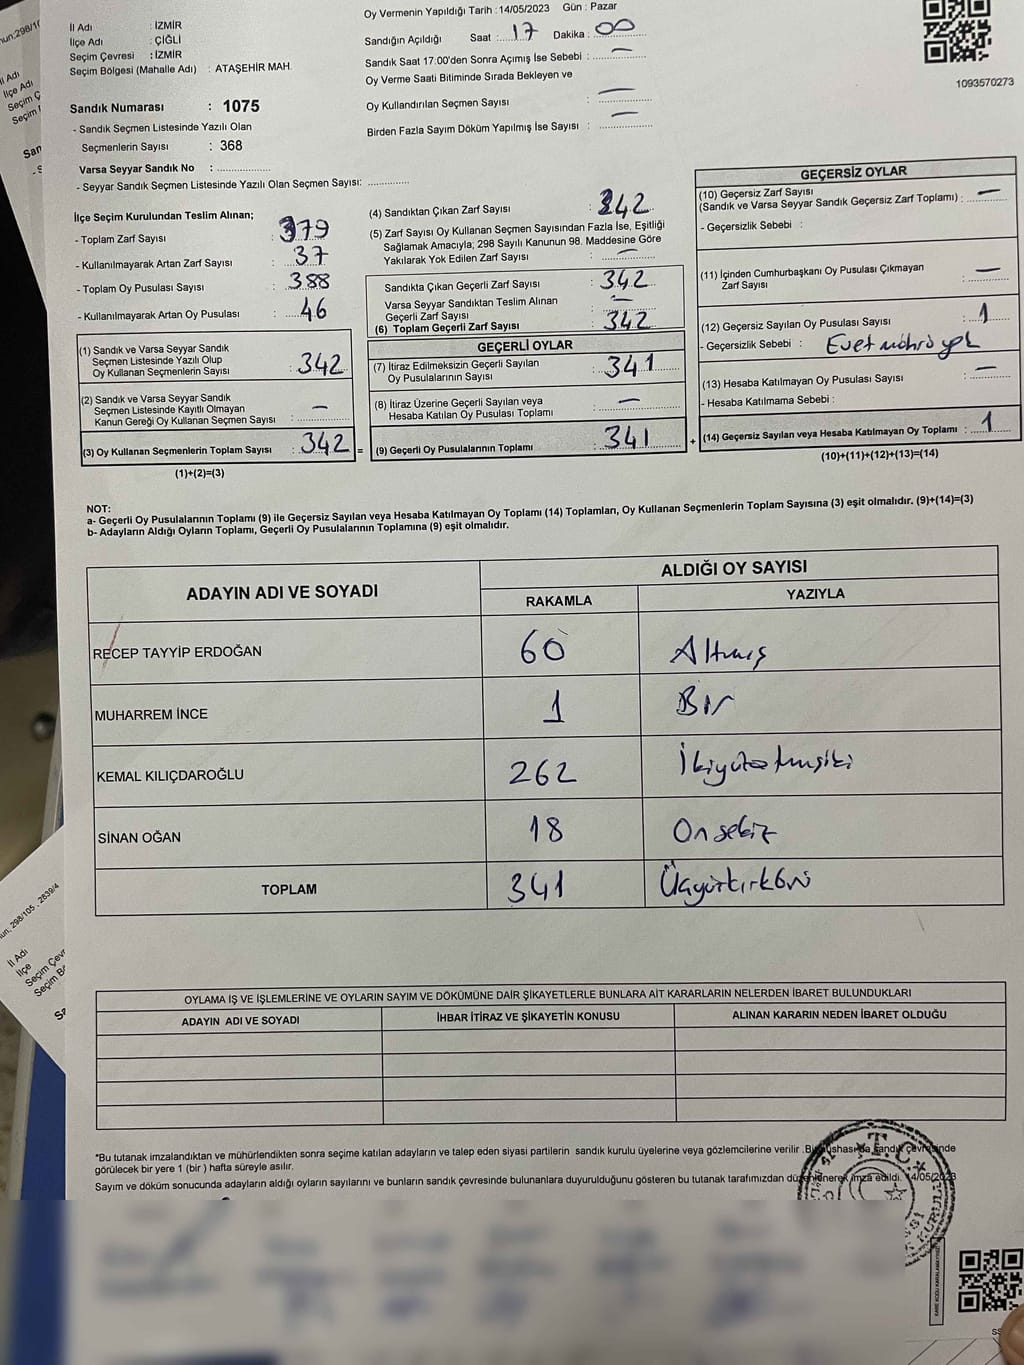 İl Adı : İZMİR
İlçe Adı : ÇİĞLİ
Seçim Çevresi : İZMİR
Seçim Bölgesi (Mahalle Adı) : ATAŞEHİR MAH.
Sandık Numarası : 1075
- Sandık Seçmen Listesinde Yazılı Olan
Seçmenlerin Sayısı : 368
Varsa Seyyar Sandık No : ..................
- Seyyar Sandık Seçmen Listesinde Yazılı Olan Seçmen Sayısı: ..............
Oy Vermenin Yapıldığı Tarih : 14/05/2023 Gün : Pazar
Sandığın Açıldığı Saat : 17 Dakika : 00
Sandık Saat 17:00'den Sonra Açımış İse Sebebi : —
Oy Verme Saati Bitiminde Sırada Bekleyen ve
Oy Kullandırılan Seçmen Sayısı : —
Birden Fazla Sayım Döküm Yapılmış İse Sayısı : —
1093570273
İlçe Seçim Kurulundan Teslim Alınan;
- Toplam Zarf Sayısı : 379
- Kullanılmayarak Artan Zarf Sayısı : 37
- Toplam Oy Pusulası Sayısı : 388
- Kullanılmayarak Artan Oy Pusulası : 46
(1) Sandık ve Varsa Seyyar Sandık
Seçmen Listesinde Yazılı Olup
Oy Kullanan Seçmenlerin Sayısı : 342
(2) Sandık ve Varsa Seyyar Sandık
Seçmen Listesinde Kayıtlı Olmayan
Kanun Gereği Oy Kullanan Seçmen Sayısı : —
(3) Oy Kullanan Seçmenlerin Toplam Sayısı : 342 =
(1)+(2)=(3)
(4) Sandıktan Çıkan Zarf Sayısı : 342
(5) Zarf Sayısı Oy Kullanan Seçmen Sayısından Fazla İse, Eşitliği
Sağlamak Amacıyla; 298 Sayılı Kanunun 98. Maddesine Göre
Yakılarak Yok Edilen Zarf Sayısı : —
Sandıkta Çıkan Geçerli Zarf Sayısı : 342
Varsa Seyyar Sandıktan Teslim Alınan
Geçerli Zarf Sayısı : —
(6) Toplam Geçerli Zarf Sayısı : 342
GEÇERLİ OYLAR
(7) İtiraz Edilmeksizin Geçerli Sayılan
Oy Pusulalarının Sayısı : 341
(8) İtiraz Üzerine Geçerli Sayılan veya
Hesaba Katılan Oy Pusulası Toplamı : —
(9) Geçerli Oy Pusulalarının Toplamı : 341 +
GEÇERSİZ OYLAR
(10) Geçersiz Zarf Sayısı
(Sandık ve Varsa Seyyar Sandık Geçersiz Zarf Toplamı) : —
- Geçersizlik Sebebi :
(11) İçinden Cumhurbaşkanı Oy Pusulası Çıkmayan
Zarf Sayısı : —
(12) Geçersiz Sayılan Oy Pusulası Sayısı : 1
- Geçersizlik Sebebi : Evet mührü yok
(13) Hesaba Katılmayan Oy Pusulası Sayısı : —
- Hesaba Katılmama Sebebi :
(14) Geçersiz Sayılan veya Hesaba Katılmayan Oy Toplamı : 1
(10)+(11)+(12)+(13)=(14)
NOT:
a- Geçerli Oy Pusulalarının Toplamı (9) ile Geçersiz Sayılan veya Hesaba Katılmayan Oy Toplamı (14) Toplamları, Oy Kullanan Seçmenlerin Toplam Sayısına (3) eşit olmalıdır. (9)+(14)=(3)
b- Adayların Aldığı Oyların Toplamı, Geçerli Oy Pusulalarının Toplamına (9) eşit olmalıdır.
ADAYIN ADI VE SOYADI
ALDIĞI OY SAYISI
RAKAMLA YAZIYLA
RECEP TAYYİP ERDOĞAN 60 Altmış
MUHARREM İNCE 1 Bir
KEMAL KILIÇDAROĞLU 262 İkiyüzatmışiki
SİNAN OĞAN 18 Onsekiz
TOPLAM 341 Üçyüzkırkbir
OYLAMA İŞ VE İŞLEMLERİNE VE OYLARIN SAYIM VE DÖKÜMÜNE DAİR ŞİKAYETLERLE BUNLARA AİT KARARLARIN NELERDEN İBARET BULUNDUKLARI
ADAYIN ADI VE SOYADI İHBAR İTİRAZ VE ŞİKAYETİN KONUSU ALINAN KARARIN NEDEN İBARET OLDUĞU
*Bu tutanak imzalandıktan ve mühürlendikten sonra seçime katılan adayların ve talep eden siyasi partilerin sandık kurulu üyelerine veya gözlemcilerine verilir. Bir nüshası da sandık çevresinde
görülecek bir yere 1 (bir) hafta süreyle asılır.
Sayım ve döküm sonucunda adayların aldığı oyların sayılarını ve bunların sandık çevresinde bulunanlara duyurulduğunu gösteren bu tutanak tarafımızdan düzenlenerek imza edildi. 14/05/2023
T.C.
KURULU